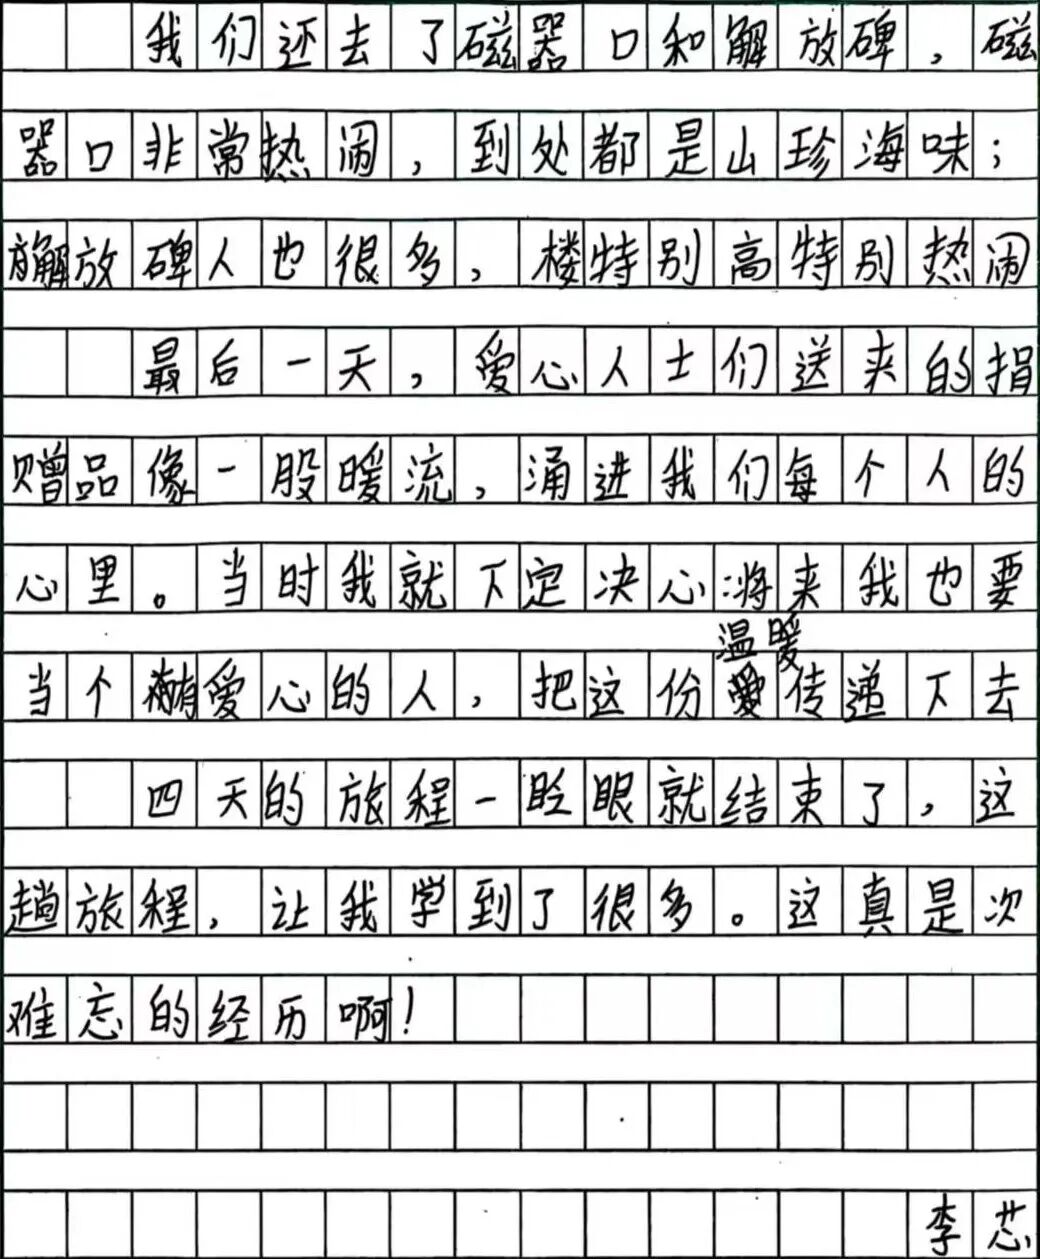 我们还去了磁器口和解放碑，磁
器口非常热闹，到处都是山珍海味；
解放碑人也很多，楼特别高特别热闹
最后一天，爱心人士们送来的捐
赠品像一股暖流，涌进我们每个人的
心里。当时我就下定决心：将来我也要
温暖
当个有爱心的人，把这份传递下去
四天的旅程一眨眼就结束了，这
趟旅程，让我学到了很多。这真是次
难忘的经历啊！
李芯